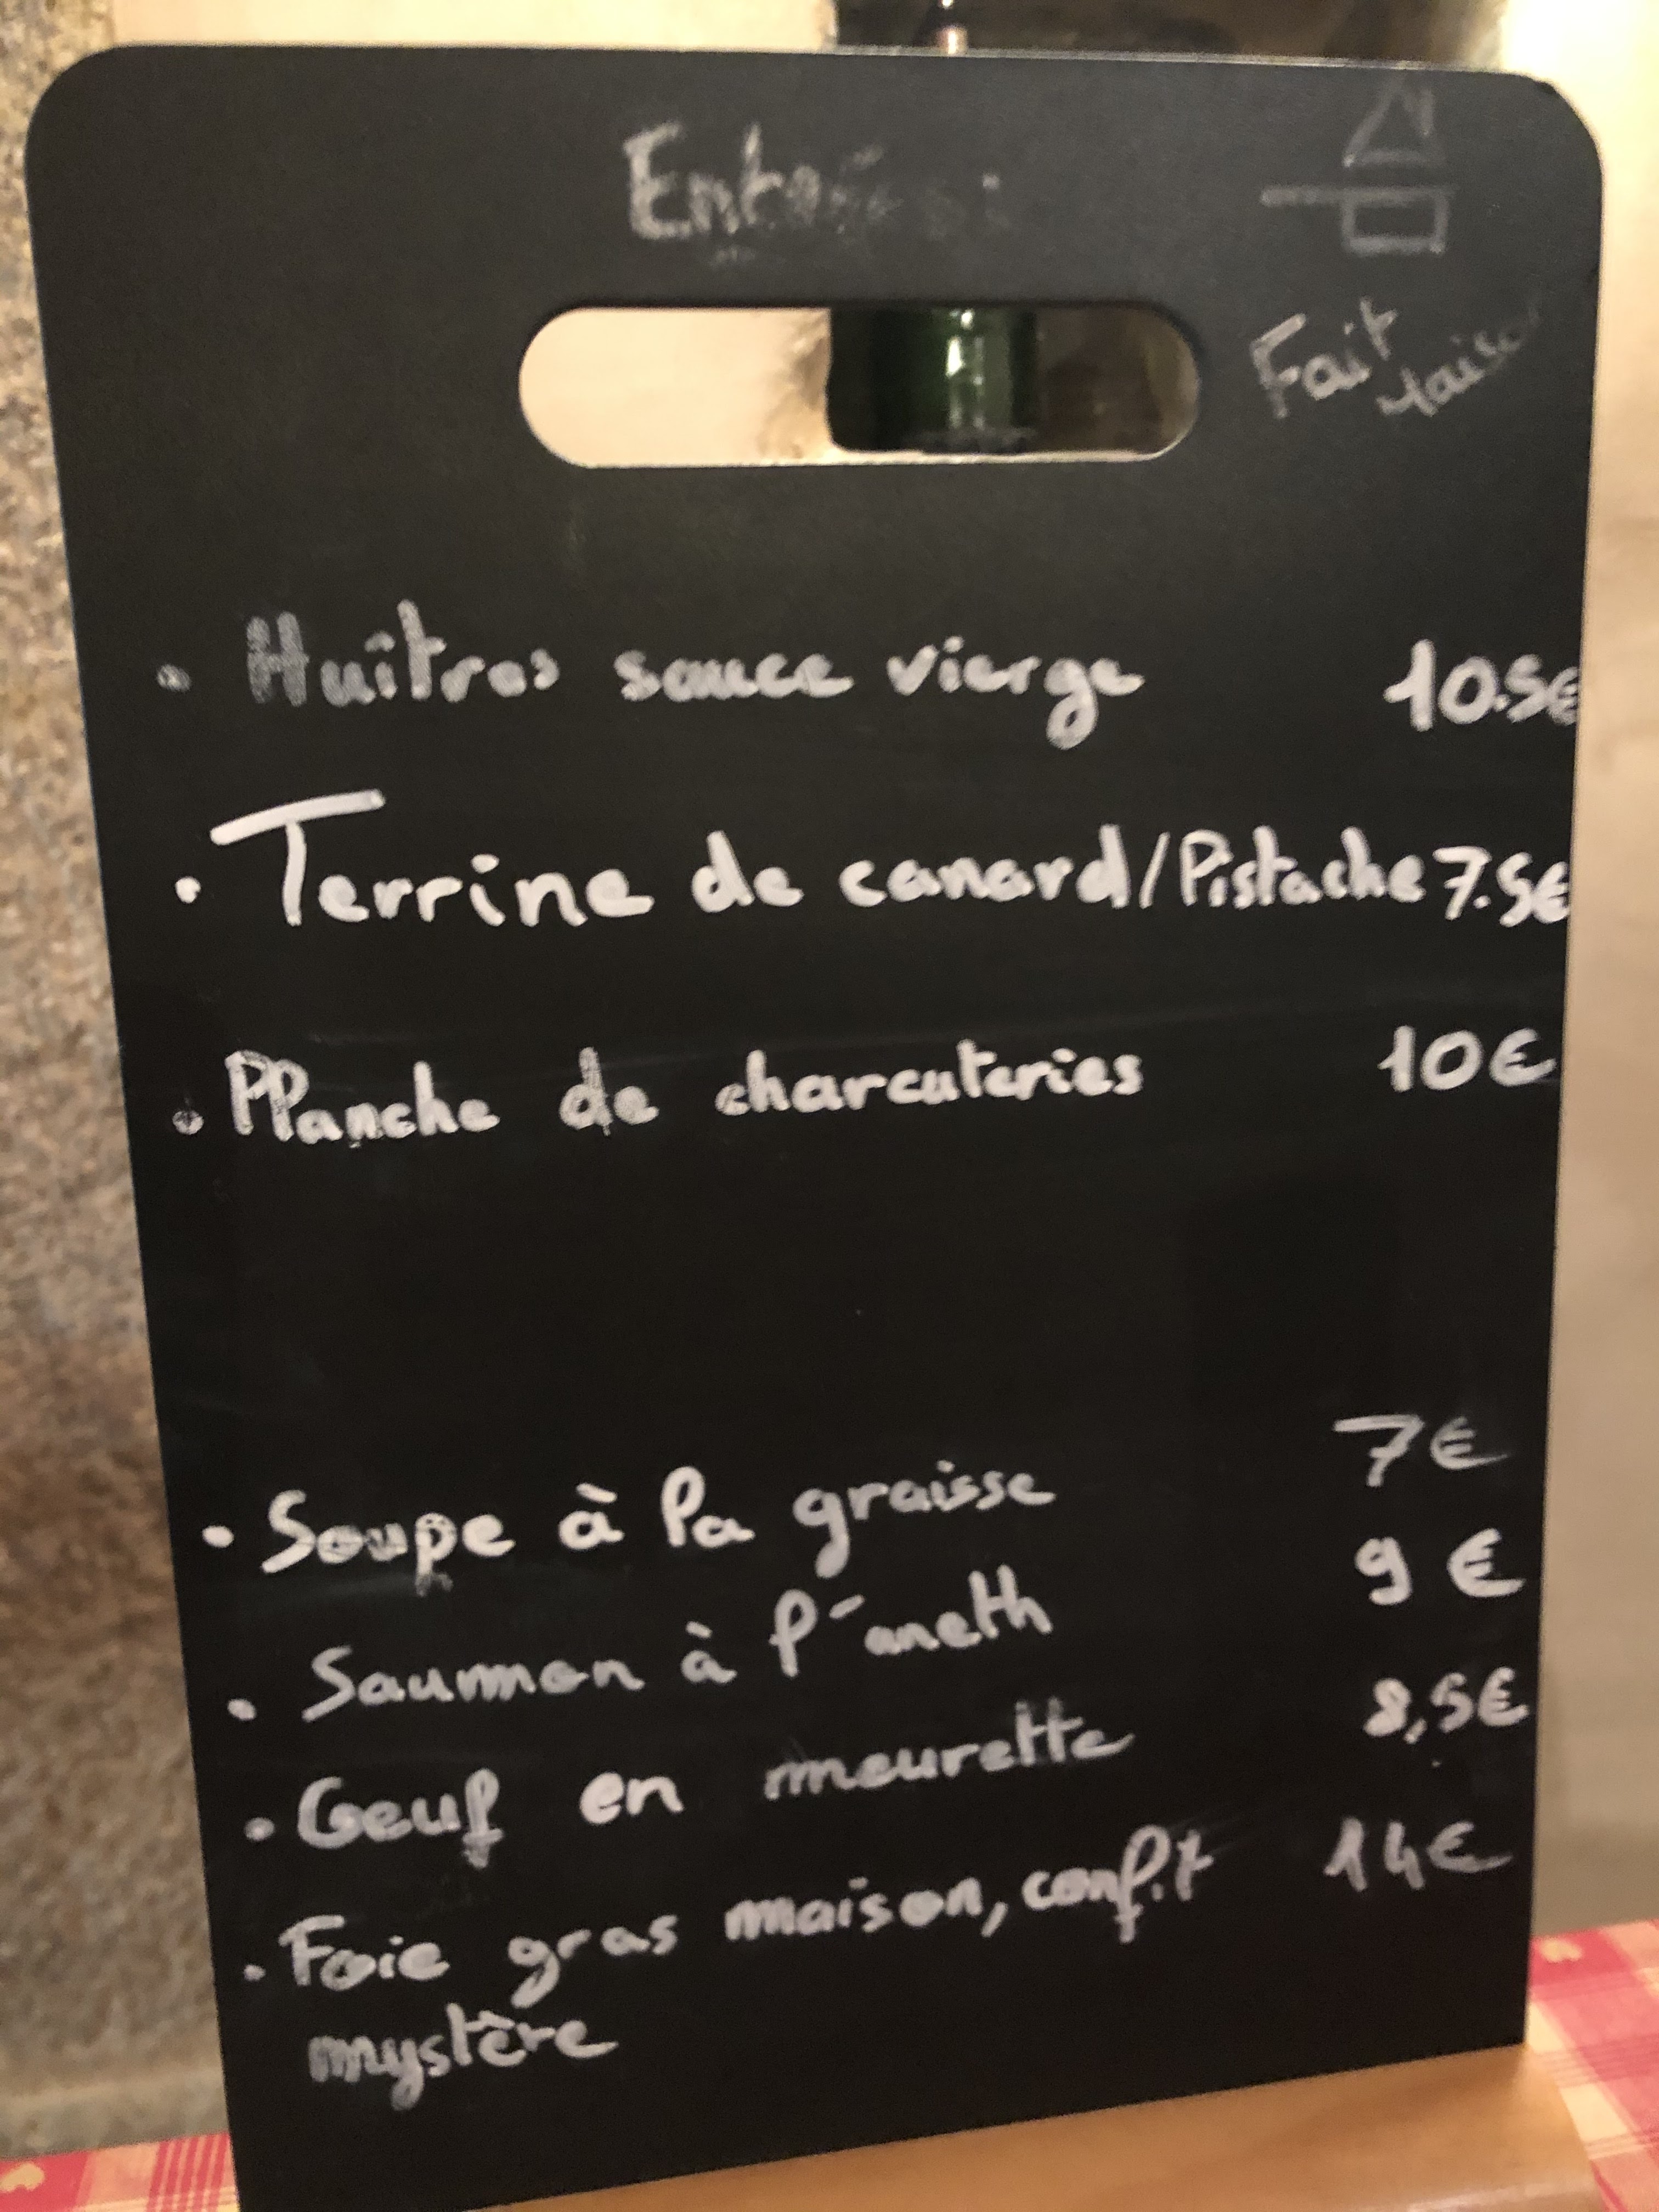 Entrées :
Fait Maison
• Huîtres sauce vierge 10.5€
• Terrine de canard/Pistache 7.5€
• Planche de charcuteries 10€
• Soupe à la graisse 7€
• Saumon à l'aneth 9 €
• Oeuf en meurette 8,5€
• Foie gras maison, confit 14€
mystère